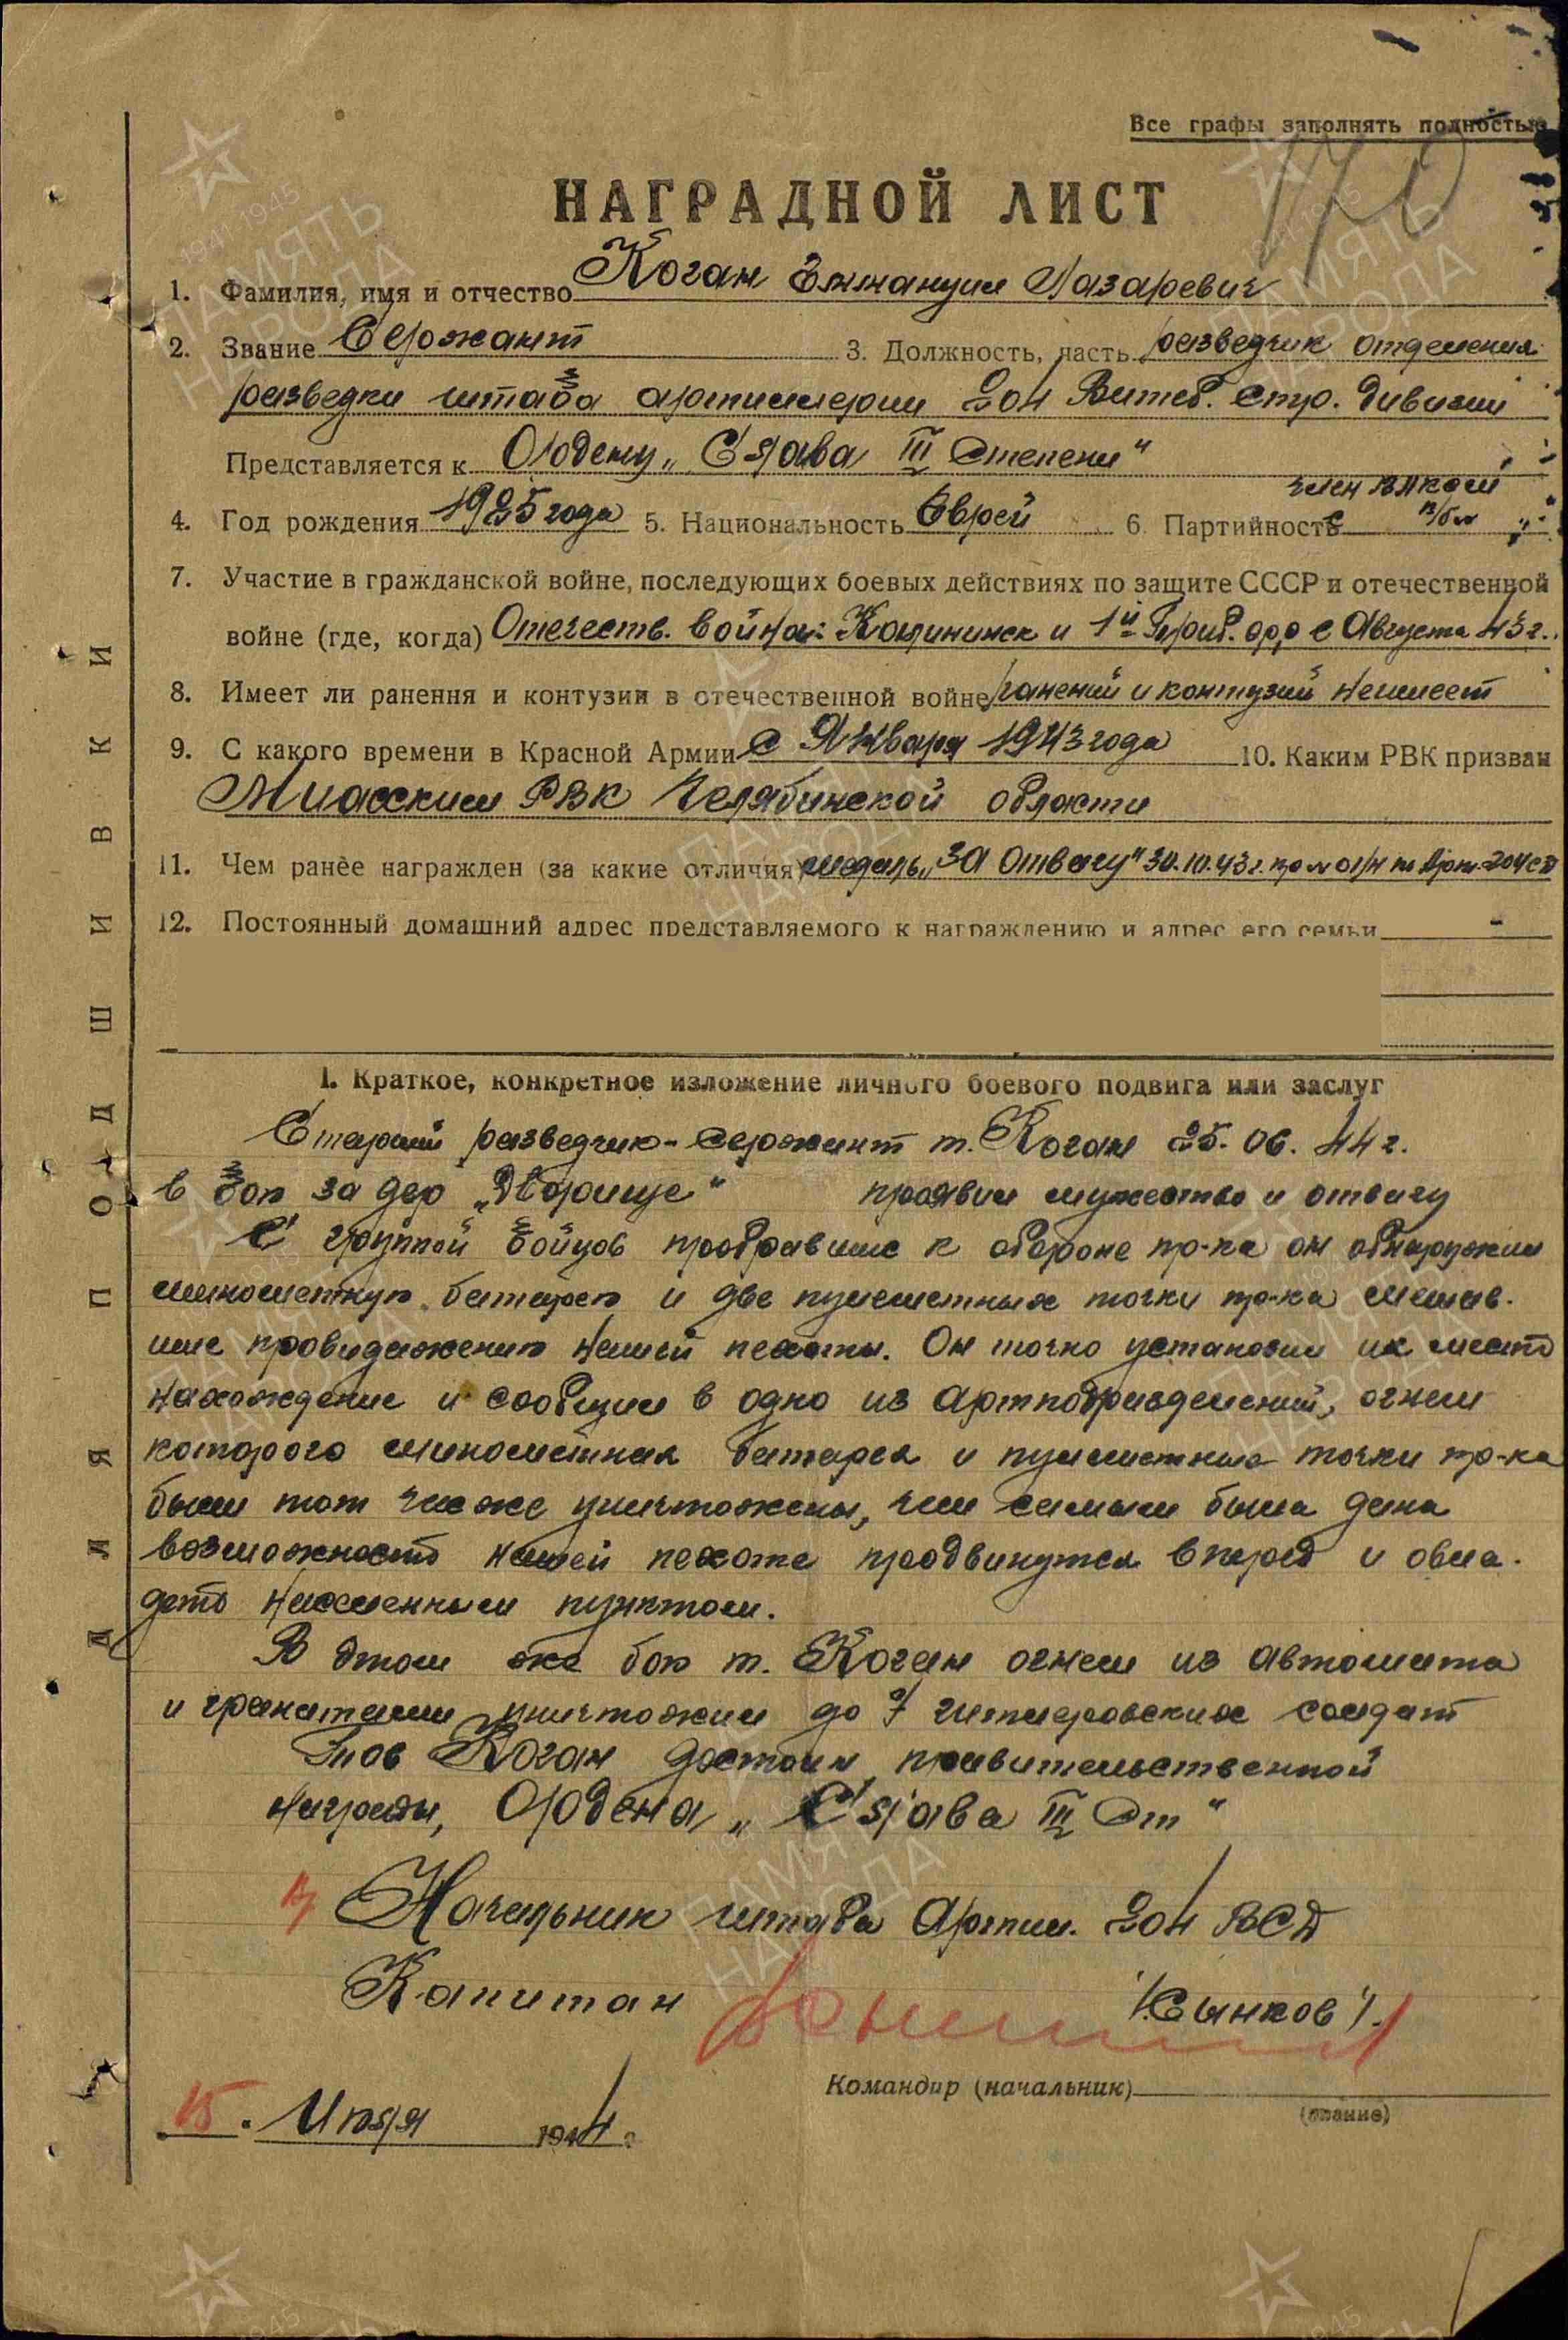 Все графы заполнять полностью
170
НАГРАДНОЙ ЛИСТ
1. Фамилия, имя и отчество Коган Эммануил Лазаревич
2. Звание Сержант 3. Должность, часть разведчик отделения
разведки штаба артиллерии 204 Витеб. Стр. дивизии
Представляется к Ордену „Слава III Степени"
член ВЛКСМ
4. Год рождения 1925 года 5. Национальность Еврей 6. Партийность с
7. Участие в гражданской войне, последующих боевых действиях по защите СССР и отечественной
войне (где, когда) Отечеств. война: Калининск и 1й Приб. фр с Августа 43г.
8. Имеет ли ранения и контузии в отечественной войне ранений и контузий неимеет
9. С какого времени в Красной Армии с Января 1943 года 10. Каким РВК призван
Миасским РВК Челябинской области
11. Чем ранее награжден (за какие отличия) медаль „За Отвагу" 30.10.43г. пр № 01/н по Арт. 204 СД
12. Постоянный домашний адрес представляемого к награждению и адрес его семьи -
1. Краткое, конкретное изложение личного боевого подвига или заслуг
Старший разведчик-сержант т. Коган 25.06.44г.
в бою за дер „Дворище" проявил мужество и отвагу
С группой бойцов пробравшис к обороне пр-ка он обнаружил
минометную батарею и две пулеметных точки пр-ка мешав-
шие провидвжению нашей пехоты. Он точно установил их место
нахождение и сообщил в одно из артподразделений, огнем
которого минометная батарея и пулеметные точки пр-ка
были тот час же уничтожены, чем самым была дана
возможность нашей пехоте продвинутся вперед и овла-
деть населенным пунктом.
В этом же бою т. Коган огнем из автомата
и гранатами уничтожил до 7 гитлеровских солдат
Тов Коган достоин правительственной
награды, Ордена „Слава III Ст"
Начальник штаба Артил. 204 ВСД
Капитан /Сынков/.
Командир (начальник)
(звание)
15. Июля 1944 г.
ДЛЯ ПОДШИВКИ